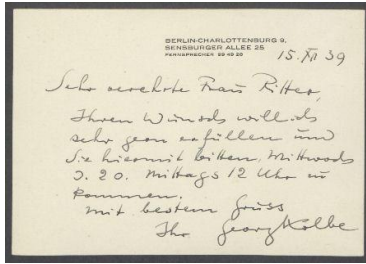 BERLIN-CHARLOTTENBURG 9,
SENSBURGER ALLEE 25
FERNSPRECHER 99 40 28
15. XII 39
Sehr verehrte Frau Ritter,
Ihren Wunsch will ich
sehr gern erfüllen und
Sie hiermit bitten, Mittwoch
d. 20. Mittags 12 Uhr zu
kommen.
Mit bestem Gruss
Ihr Georg Kolbe